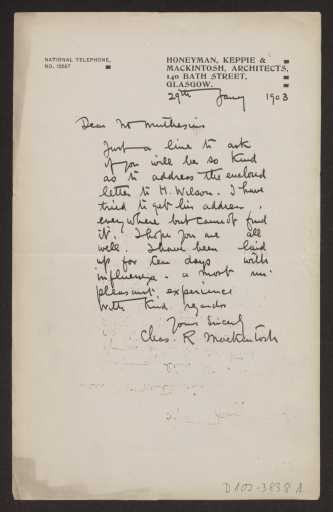 NATIONAL TELEPHONE,
NO. 1566?
HONEYMAN, KEPPIE &
MACKINTOSH, ARCHITECTS,
140 BATH STREET,
GLASGOW.
29th Jany 1903
Dear Mr Muthesius
Just a line to ask
if you will be so kind
as to address the enclosed
letter to H. Wilson. I have
tried to get his address,
everywhere but cannot find
it. I hope you are all
well. I have been laid
up for ten days with
influenza - a most un-
pleasant experience
With kind regards
Yours Sincerely
Chas. R Mackintosh
D 102-3838 A